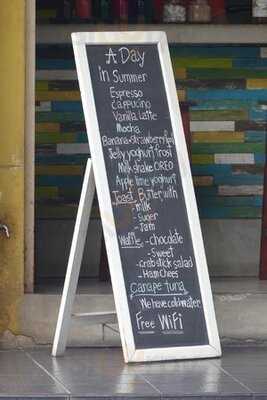 A DAY
In Summer
Espresso
Cappucino
Vanilla Latte
Mocha
Banana-strawberry
Jelly yoghurt frost
Milk shake OREO
Apple lime yoghurt
Toast Butter with
- milk
- Suger
- Jam
Waffle - chocolate
- Sweet
- crab stick salad
- Ham Chees
Canape tuna
We have cold water
Free WiFi